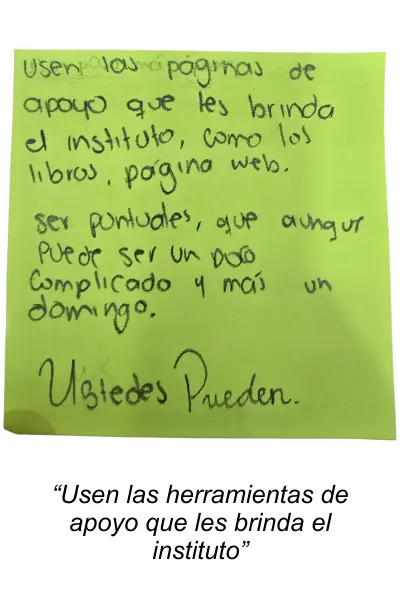 usen las páginas de
apoyo que les brinda
el instituto, como los
libros, página web.
ser puntuales, que aunque
puede ser un poco
complicado y más un
domingo.
Ustedes Pueden.
“Usen las herramientas de
apoyo que les brinda el
instituto”